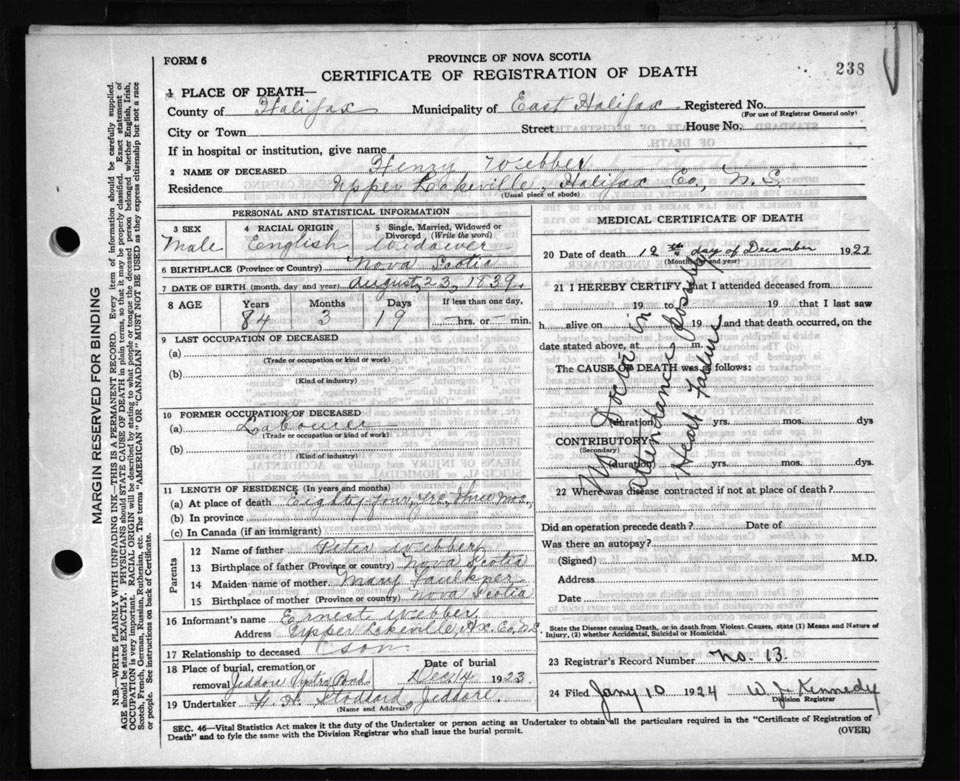 FORM 6
PROVINCE OF NOVA SCOTIA
CERTIFICATE OF REGISTRATION OF DEATH
238
1 PLACE OF DEATH—
County of Halifax Municipality of East Halifax Registered No.
(For use of Registrar General only)
City or Town Street House No.
If in hospital or institution, give name
2 NAME OF DECEASED Henry Webber
Residence Upper Lakeville, Halifax Co., N.S.
(Usual place of abode)
PERSONAL AND STATISTICAL INFORMATION
3 SEX 4 RACIAL ORIGIN 5 Single, Married, Widowed or Divorced (Write the word)
Male English Widower
6 BIRTHPLACE (Province or Country) Nova Scotia
7 DATE OF BIRTH (month, day and year) August, 23, 1839.
8 AGE Years Months Days If less than one day,
84 3 19 — hrs. or — min.
9 LAST OCCUPATION OF DECEASED
(a)
(Trade or occupation or kind or work)
(b)
(Kind of industry)
10 FORMER OCCUPATION OF DECEASED
(a) Labourer
(Trade or occupation or kind of work)
(b)
(Kind of industry)
11 LENGTH OF RESIDENCE (In years and months)
(a) At place of death Eighty-four, yrs, Three Mos.,
(b) In province
(c) In Canada (if an immigrant)
Parents
12 Name of father Peter Webber
13 Birthplace of father (Province or country) Nova Scotia
14 Maiden name of mother Mary Faulkner
15 Birthplace of mother (Province or country) Nova Scotia
16 Informant's name Ernest Webber
Address Upper Lakeville, Hx. Co., N.S.
17 Relationship to deceased son
18 Place of burial, cremation or removal Jeddore Date of burial Dec. 14 1923.
19 Undertaker Stoddard, Jeddore.
(Name and Address)
MEDICAL CERTIFICATE OF DEATH
20 Date of death 12th day of December 1923
(Month, day and year)
21 I HEREBY CERTIFY that I attended deceased from
19 to 19 that I last saw
h alive on 19 and that death occurred, on the
date stated above, at m.
The CAUSE OF DEATH was as follows:
No Doctor in
attendance possibly
Heart Failure
(duration) yrs. mos. dys
CONTRIBUTORY
(Secondary)
(duration) yrs. mos. dys.
22 Where was disease contracted if not at place of death?
Did an operation precede death? Date of
Was there an autopsy?
(Signed) M.D.
Address
Date
State the Disease causing Death, or in death from Violent Causes, state (1) Means and Nature of
Injury, (2) whether Accidental, Suicidal or Homicidal.
23 Registrar's Record Number No. 13.
24 Filed Jany 10 1924 W. J. Kennedy
Division Registrar
SEC. 46—Vital Statistics Act makes it the duty of the Undertaker or person acting as Undertaker to obtain all the particulars required in the "Certificate of Registration of
Death" and to fyle the same with the Division Registrar who shall issue the burial permit.
(OVER)
MARGIN RESERVED FOR BINDING
N.B.—WRITE PLAINLY WITH UNFADING INK—THIS IS A PERMANENT RECORD. Every item of information should be carefully supplied.
AGE should be stated EXACTLY. PHYSICIANS should STATE CAUSE OF DEATH in plain terms, so that it may be properly classified. Exact statement of
OCCUPATION is very important. RACIAL ORIGIN will be described by stating to what people or tongue the deceased person belonged whether English, Irish,
Scotch, French, German, Russian, Ruthenian, etc. The terms "AMERICAN" OR "CANADIAN" MUST NOT BE USED as they express citizenship but not a race
or people. See instructions on back of Certificate.